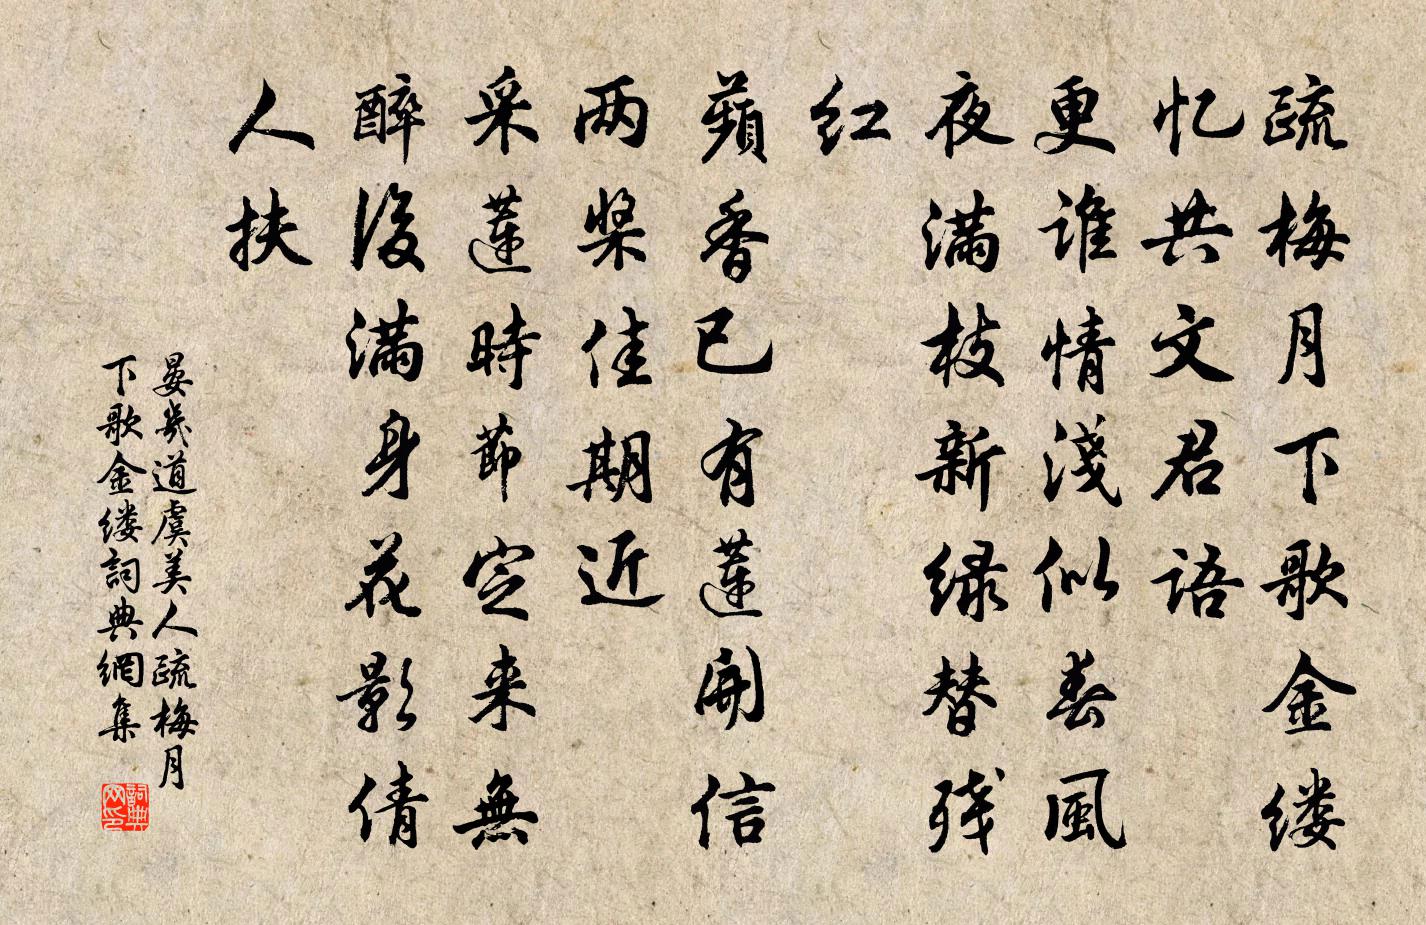 疏梅月下歌金缕
忆共文君语
更谁情淺似春風
夜满枝新绿替残
红
蘋香已有蓮開信
两桨佳期近
采蓮時節定来無
醉後满身花影倩
人扶
晏幾道虞美人疏梅月
下歌金缕詞典網集
詞典
网印